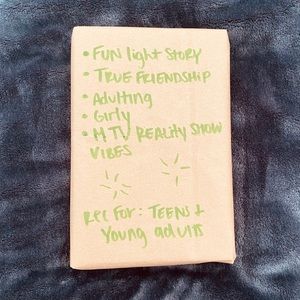 • FUN light STORY
• TRUE FRIENDSHIP
• Adulting
• Girly
• MTV REALITY SHOW
VIBES
Rec FOR: TEENS +
Young adults